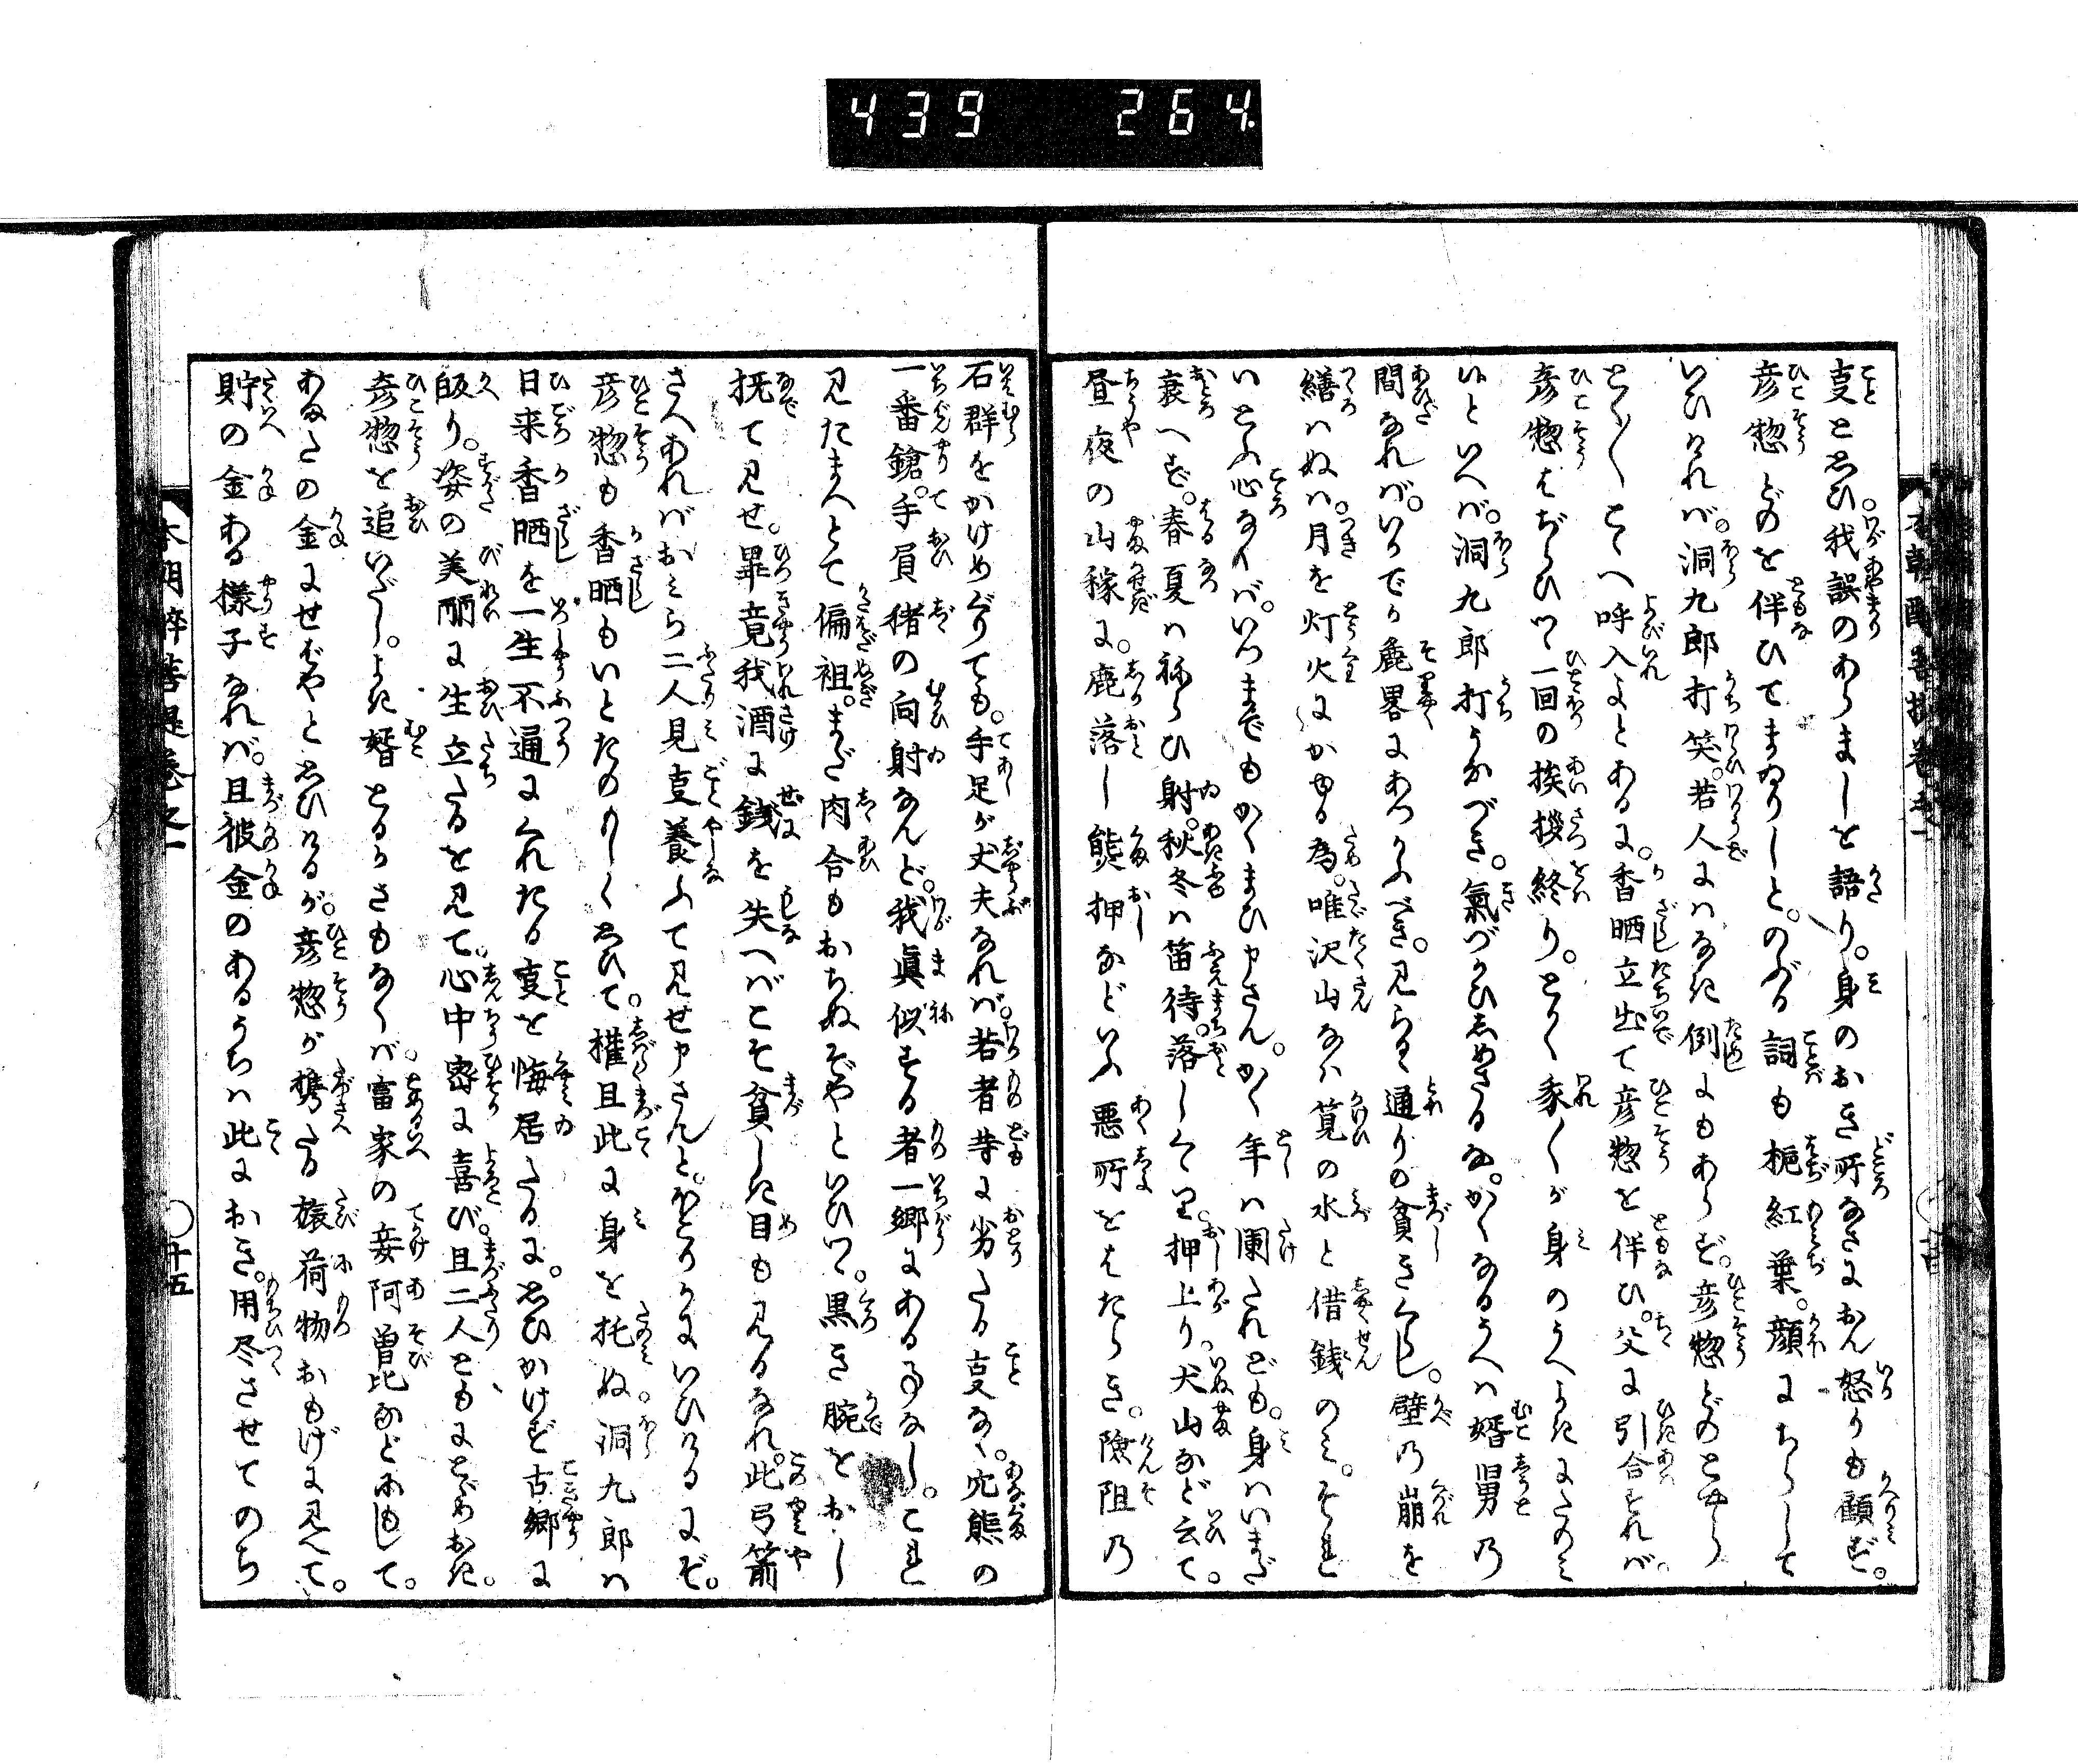 439 264
本朝酔菩提巻之一
事とおもひ我誤のあらましを語り。身のおき所なさにおん怒りも顧ず。
彦惣どのを伴ひてまゐりしと。のぶる詞も梔紅葉。顔にちらして
いひければ。洞九郎打笑。若人にはなき例にもあらず。彦惣どのとやら
とく〳〵こゝへ呼入よとある に。香晒立出て彦惣を伴ひ。父に引合すれば。
彦惣はぢらひつゝ一回の挨拶終り。とく〳〵我〳〵が身のうへよきにたのみ
いといへば。洞九郎打うなづき。氣づかひしめさるな。かくなるうへは婿舅の
間なれば。いかでか麁畧にあつかふべき。見らるゝ通りの貧きくらし。壁乃崩を
繕はぬは。月を灯火にかゆる為。唯沢山なるは筧の水と借銭のみ。それ
いとふ心なくば。いつまでもかくまひ申さん。かく年は闌たれども。身はいまだ
衰へず。春夏は祢らひ射。秋冬は笛待。落しくゝり。押上り。犬山など云て。
昼夜の山稼に。鹿落し熊押などいふ悪所をはたらき。険阻乃
石群をかけめぐりても。手足が丈夫なれば。若者等に劣たる事なく。穴熊の
一番鎗。手負猪の向射なんど。我眞似する者一郷にある事なし。これ
見たまへとて偏袒。まだ肉合もおちぬぞやといひつゝ。黒き腕をおし
撫て見せ。畢竟我酒に銭を失へばこそ貧しき目も見るなれ。此弓箭
さへあればおミら二人見事養ふて見せ申さんと。おとりかにいひけるにぞ。
彦惣も香晒もいとたのもしくおもひて。權且此に身を托ぬ洞九郎は
日来香晒を一生不通にくれたる事を悔居たるに。おもひかけず古郷に
皈り。姿の美麗に生立たるを見て。心中密に喜び。且二人ともにとゞめおき。
彦惣を追いだし。よき婿とるかさもなくば富家の妾阿曽比などにもして。
あまたの金にせばやとおもひけるが。彦惣が携たる旅荷物おもげに見へて。
貯の金ある様子なれば。且彼金のあるうちは此におき。用尽させてのち
本朝酔菩提巻之一
十五